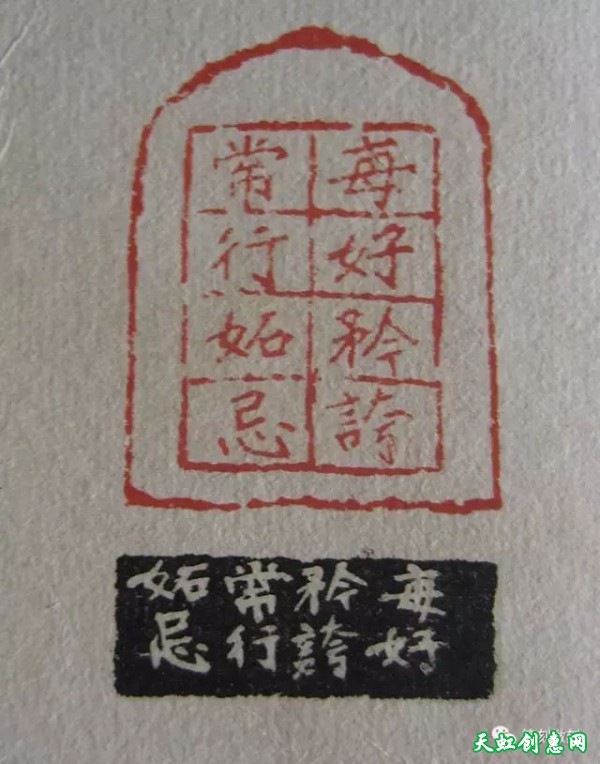 每好矜誇
常行妬忌
每好
矜誇
常行
妬忌
天虹创惠网